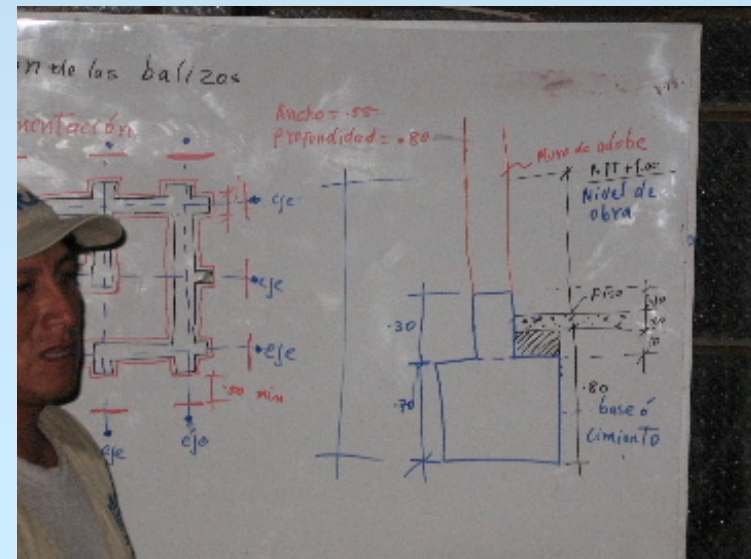 de los balizos
mentación
Ancho = .55
Profundidad = .80
Muro de adobe
N.PT + 1.00
Nivel de
obra
eje
eje
eje
.50 min
eje
eje
piso
.30
.70
.80
base ó
cimiento